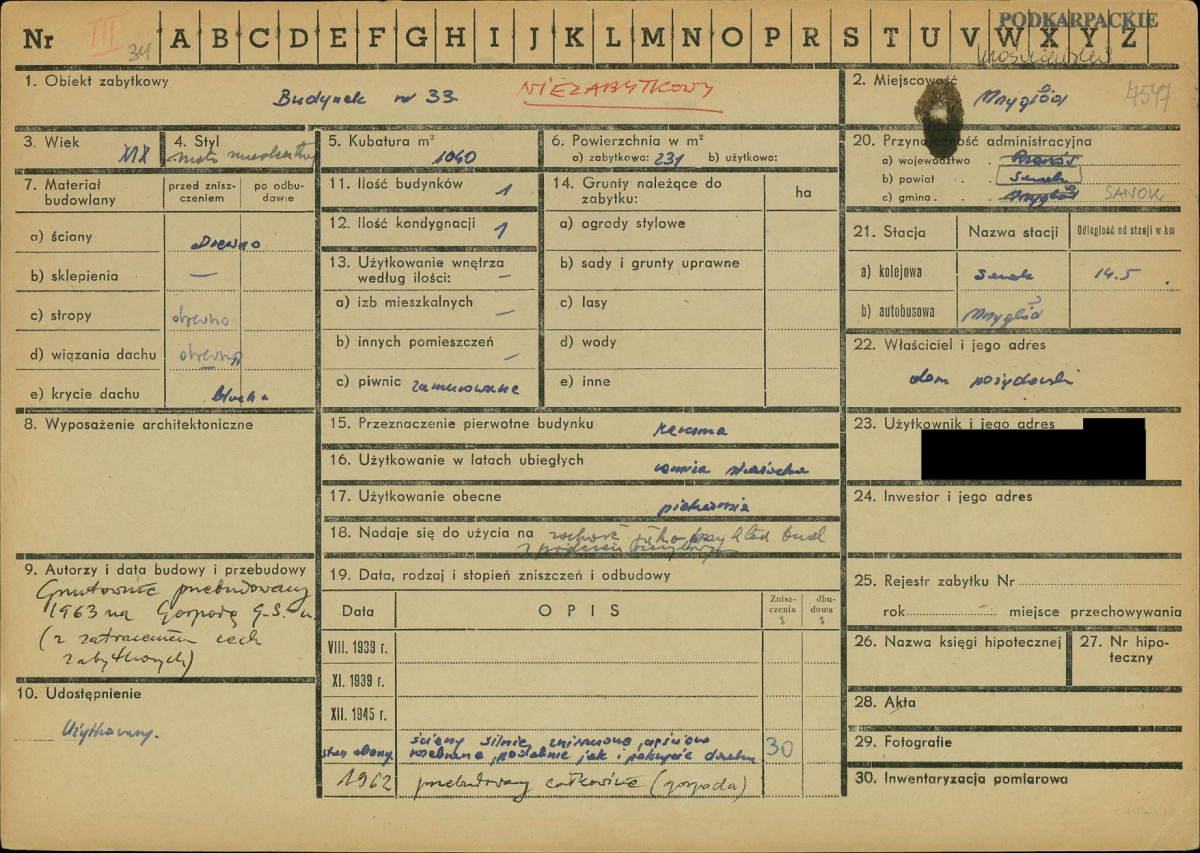 PODKARPACKIE
Nr III 34 A B C D E F G H I J K L M N O P R S T U V W X Y Z
1. Obiekt zabytkowy
Budynek nr 33
NIEZABYTKOWY
2. Miejscowość
Mrzygłód
4547
3. Wiek
XIX
4. Styl
5. Kubatura m³
1040
6. Powierzchnia w m²
a) zabytkowa: 231 b) użytkowa:
7. Materiał budowlany
przed zniszczeniem
po odbudowie
a) ściany
Drewno
b) sklepienia
—
c) stropy
drewno
d) wiązania dachu
drewno
e) krycie dachu
blacha
8. Wyposażenie architektoniczne
9. Autorzy i data budowy i przebudowy
Gruntownie przebudowany
1963 na Gospodę G.S.
(z zatraceniem cech
zabytkowych)
10. Udostępnienie
Użytkowany.
11. Ilość budynków
1
12. Ilość kondygnacji
1
13. Użytkowanie wnętrza
według ilości: —
a) izb mieszkalnych
—
b) innych pomieszczeń
—
c) piwnic zamurowane
14. Grunty należące do
zabytku:
ha
a) ogrody stylowe
b) sady i grunty uprawne
c) lasy
d) wody
e) inne
15. Przeznaczenie pierwotne budynku
karczma
16. Użytkowanie w latach ubiegłych
17. Użytkowanie obecne
piekarnia
18. Nadaje się do użycia na
zachować jako przykład bud
19. Data, rodzaj i stopień zniszczeń i odbudowy
Data
OPIS
Zniszczenia %
dbudowa %
VIII. 1939 r.
XI. 1939 r.
XII. 1945 r.
stan obecny
ściany silnie zniszczone,
podobnie jak i pokrycie dachu
30
1962
przebudowany całkowicie (gospoda)
20. Przynależność administracyjna
a) województwo
b) powiat
Sanok
c) gmina
Mrzygłód
SANOK
21. Stacja
Nazwa stacji
Odległość od stacji w km
a) kolejowa
Sanok
14.5
b) autobusowa
Mrzygłód
22. Właściciel i jego adres
dom pożydowski
23. Użytkownik i jego adres
24. Inwestor i jego adres
25. Rejestr zabytku Nr
rok — miejsce przechowywania
26. Nazwa księgi hipotecznej
27. Nr hipoteczny
28. Akta
29. Fotografie
30. Inwentaryzacja pomiarowa